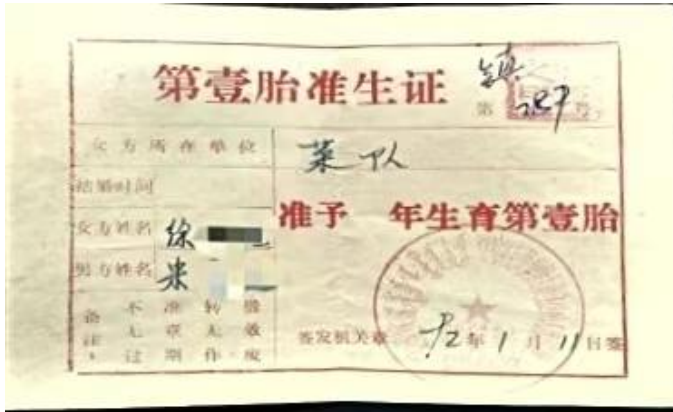 第壹胎准生证
镇
第 号
女方所在单位 菜队
结婚时间
女方姓名 徐
男方姓名 米
准予 年生育第壹胎
备注：
不准转借
无章无效
过期作废
签发机关章 年1月11日签